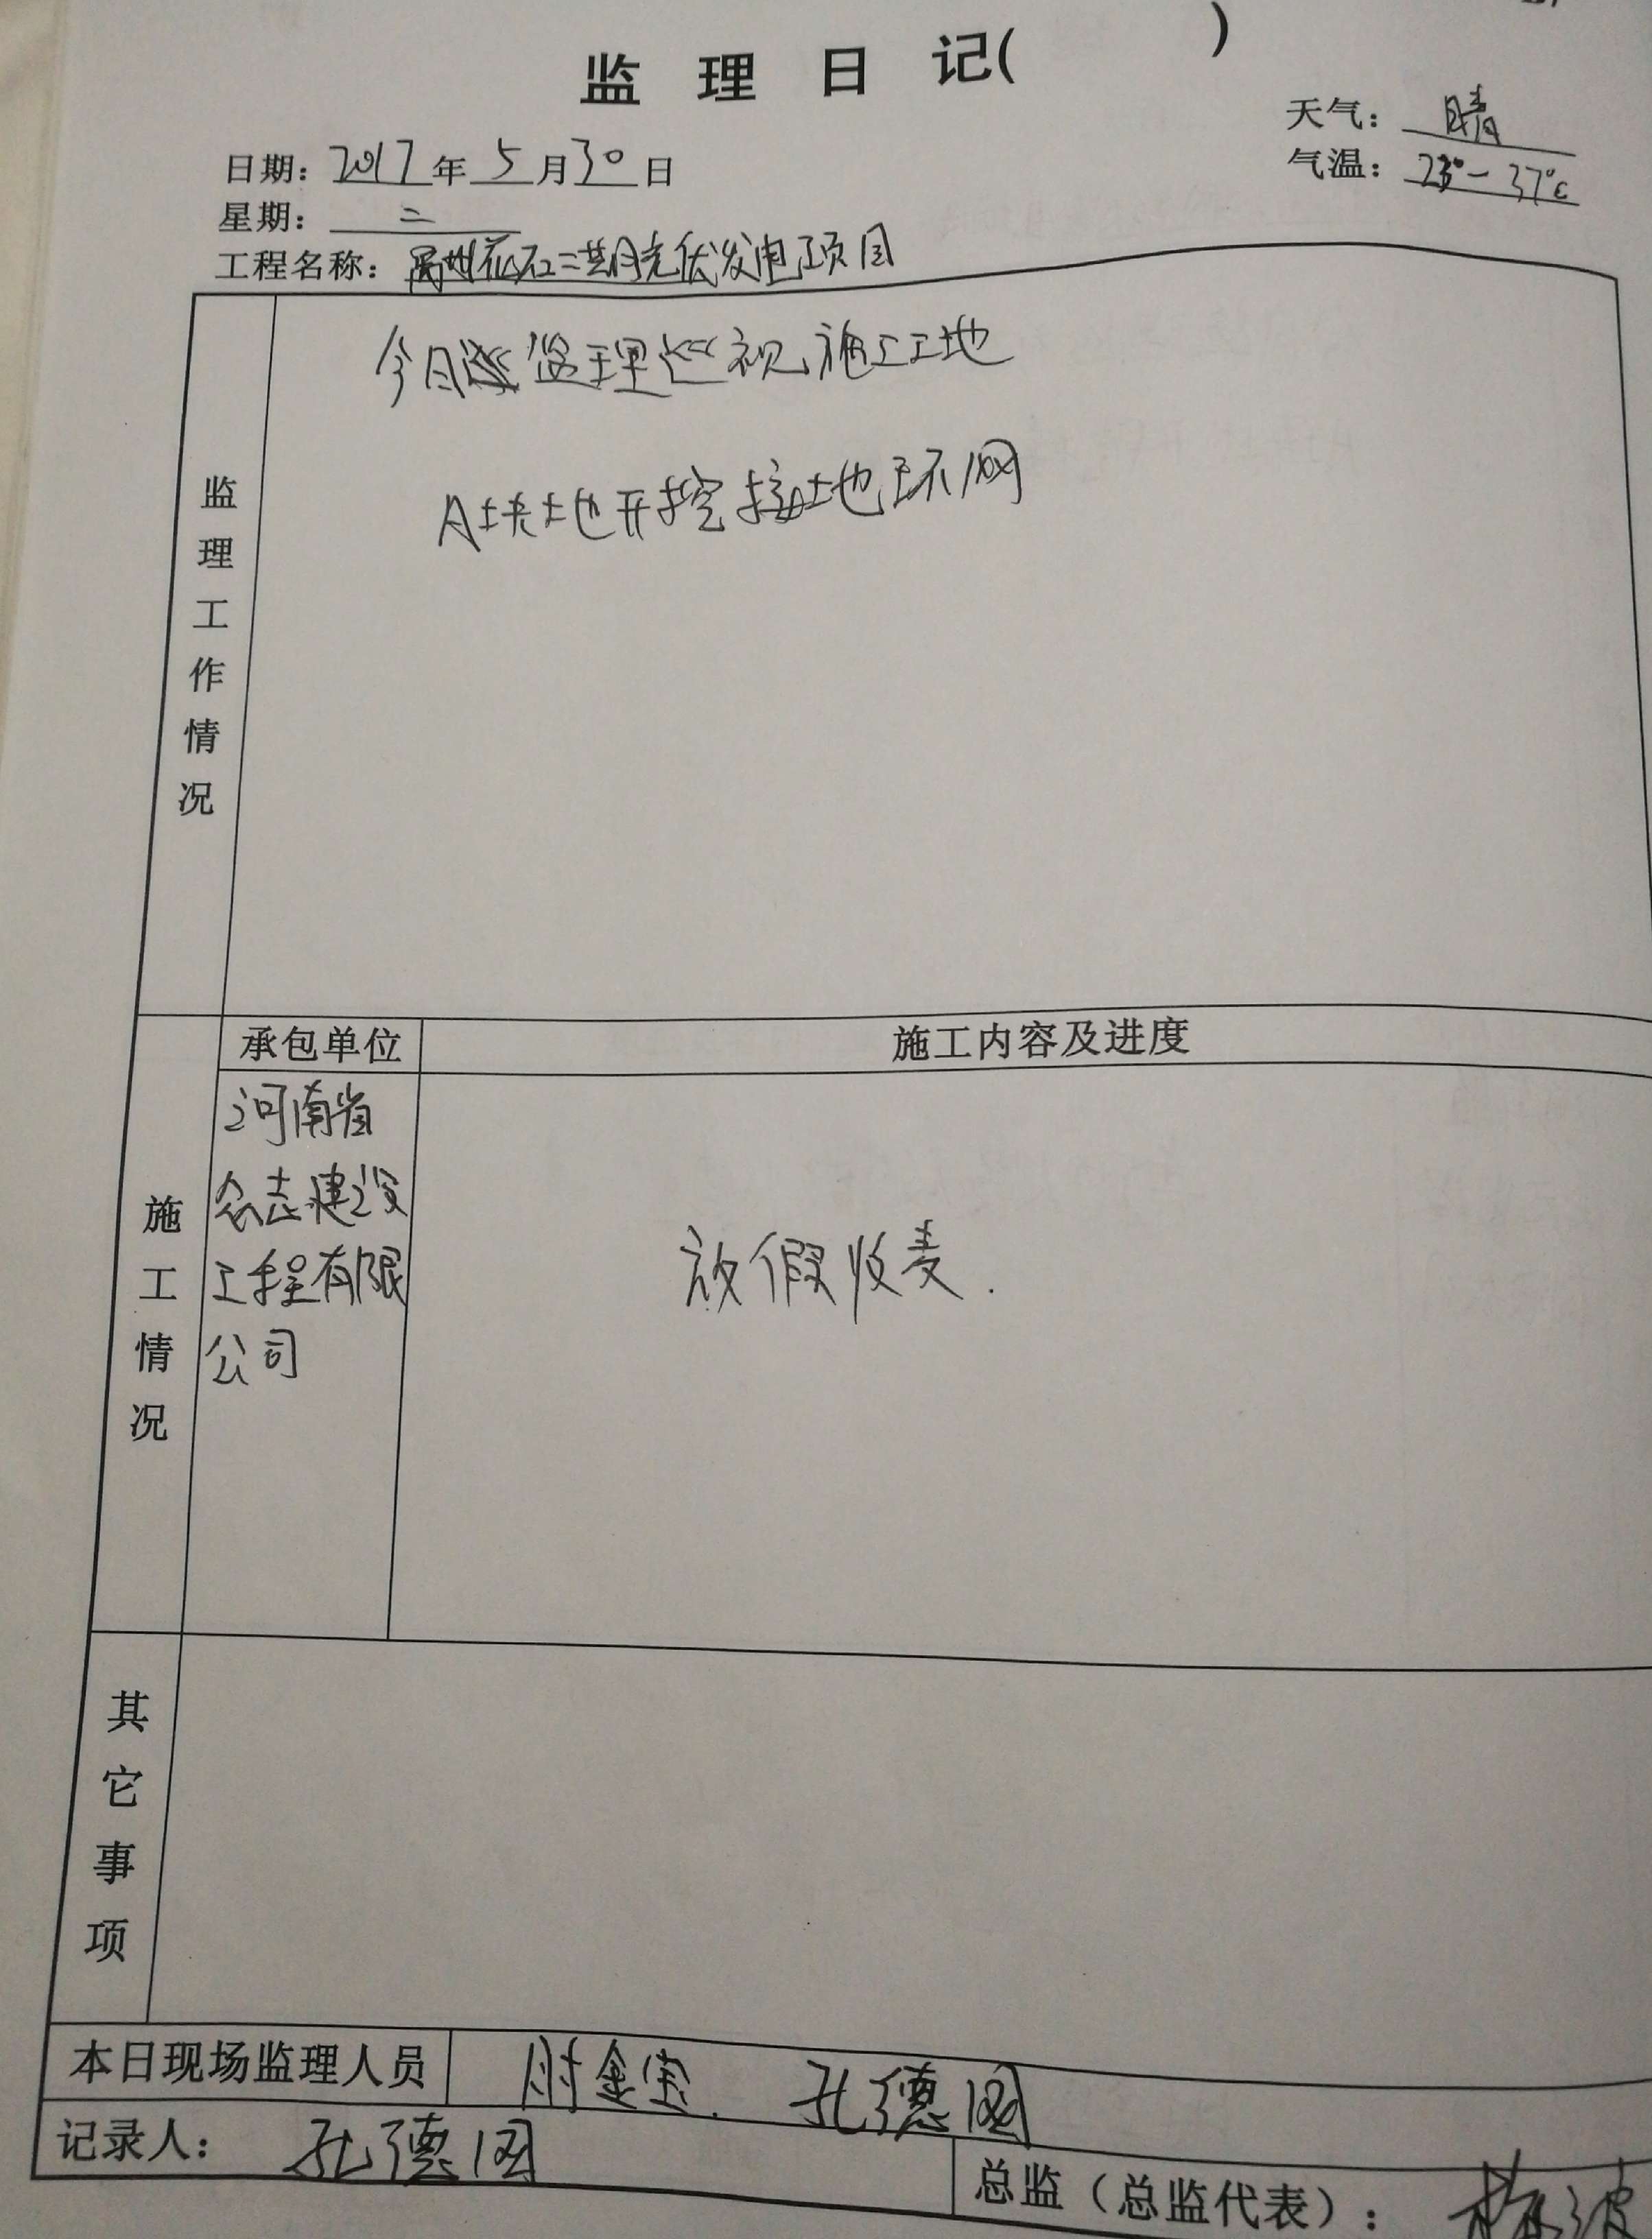 监理日记( )
天气：晴
日期：2017年5月30日
气温：23°-37℃
星期：二
工程名称：禹州花石二期光伏发电项目
监理工作情况
今日监理巡视施工工地
A块地开挖接地环网
施工情况
承包单位
施工内容及进度
河南省
众志建设
工程有限
公司
放假收麦.
其它事项
本日现场监理人员 时金宝. 孔德
记录人：孔德
总监（总监代表）：